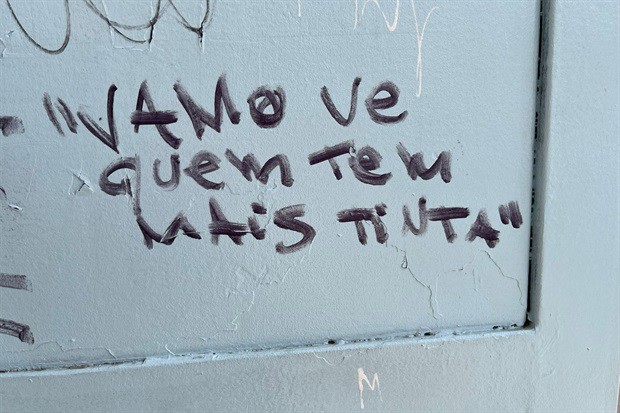 "VAMO Ve
quem Tem
MAiS TiNTA"
M